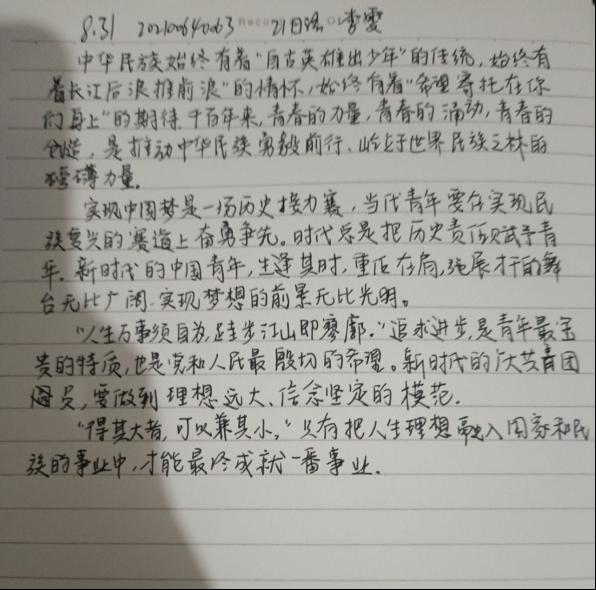 8.31 20210640063 21日语 李雯
中华民族始终有着“自古英雄出少年”的传统，始终有
着长江后浪推前浪”的情怀，始终有着“希望寄托在你
们身上”的期待．千百年来，青春的力量，青春的涌动，青春的
创造，是推动中华民族勇毅前行、屹立于世界民族之林的
磅礴力量．
实现中国梦是一场历史接力赛，当代青年要在实现民
族复兴的赛道上奋勇争先。时代总是把历史责任赋予青
年．新时代的中国青年，生逢其时，重任在肩，施展才干的舞
台无比广阔．实现梦想的前景无比光明。
“人生万事须自为，跬步江山即寥廓．”追求进步，是青年最宝
贵的特质，也是党和人民最殷切的希望。新时代的广大共青团
员，要做到理想远大、信念坚定的模范．
“得其大者，可以兼其小．”只有把人生理想融入国家和民
族的事业中，才能最终成就一番事业．